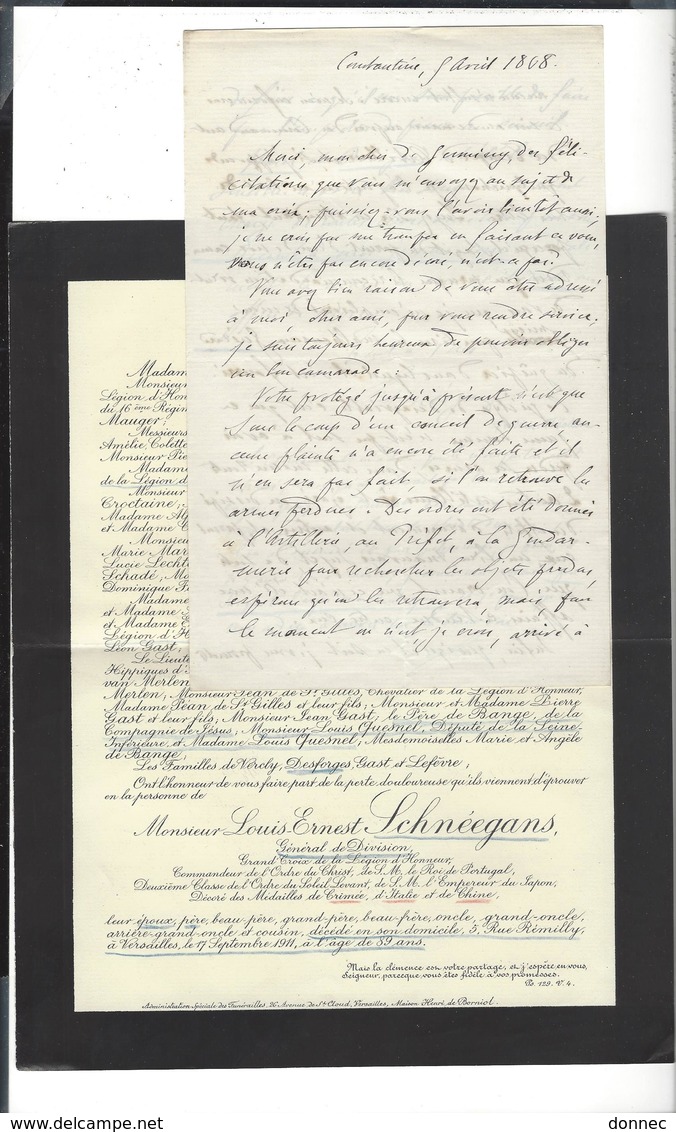 Constantine, 5 Avril 1868.
Merci, mon cher de Germiny, des féli-
citations que vous m'envoyez au sujet de
ma croix; puissiez-vous l'avoir bientôt aussi,
je ne crois pas me tromper en faisant ce vœu,
vous n'êtes pas encore décoré, n'est-ce pas.
Vous avez bien raison de vous être adressé
à moi, cher ami, pour vous rendre service;
je suis toujours heureux de pouvoir obliger
un bon camarade:
Votre protégé jusqu'à présent n'est que
sous le coup d'un conseil de guerre au-
cune plainte n'a encore été faite et il
n'en sera pas fait si l'on retrouve les
armes perdues. Des ordres ont été donnés
à l'Artillerie, au Préfet, à la Gendar-
merie pour rechercher les objets perdus,
espérons qu'on les retrouvera, mais, pour
le moment on n'est je crois, arrivé à
Madame
Monsieur
Légion d'Hon
du 16ème Régim
Mauger;
Messieurs
Amélie, Colette
Monsieur Pie
Madame
de la Légion d
Monsieur
Croctaine,
Madame A
et Madame C
Monsieu
Marie Mar
Lucie Lecht
Schadé, M
Dominique
Madame
et Madame
et Madame E
Légion d'H
Léon Gast;
Le Lieute
Hippiques d'
van Merlen
Merlen; Monsieur Jean de St Gilles, Chevalier de la Légion d'Honneur,
Madame Jean de St Gilles et leur fils; Monsieur et Madame Pierre
Gast et leur fils; Monsieur Jean Gast; le Père de Bange, de la
Compagnie de Jésus; Monsieur Louis Quesnel, Député de la Seine-
Inférieure, et Madame Louis Quesnel; Mesdemoiselles Marie et Angèle
de Bange;
Les Familles de Vercly, Desforges, Gast et Lefèvre;
Ont l'honneur de vous faire part de la perte douloureuse qu'ils viennent d'éprouver
en la personne de
Monsieur Louis-Ernest Schnéegans,
Général de Division,
Grand Croix de la Légion d'Honneur,
Commandeur de l'Ordre du Christ, de S.M. le Roi de Portugal,
Deuxième Classe de l'Ordre du Soleil Levant, de S.M. l'Empereur du Japon,
Décoré des Médailles de Crimée, d'Italie et de Chine,
leur époux, père, beau-père, grand-père, beau-frère, oncle, grand-oncle,
arrière-grand-oncle et cousin, décédé en son domicile, 5, Rue Rémilly,
à Versailles, le 17 Septembre 1911, à l'âge de 89 ans.
Mais la clémence est votre partage, et j'espère en vous,
Seigneur, parce que vous êtes fidèle à vos promesses.
Ps. 129. V. 4.
Administration Spéciale des Funérailles, 26 Avenue de St Cloud, Versailles, Maison Henri de Borniol.
delcampe.net
donnec